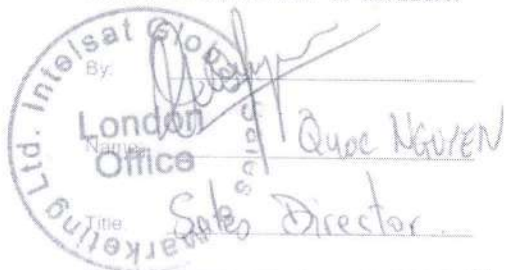 Intelsat Global Sales Marketing Ltd.
By:
London
Office
Name:
Quoc NGUYEN
Title:
Sales Director